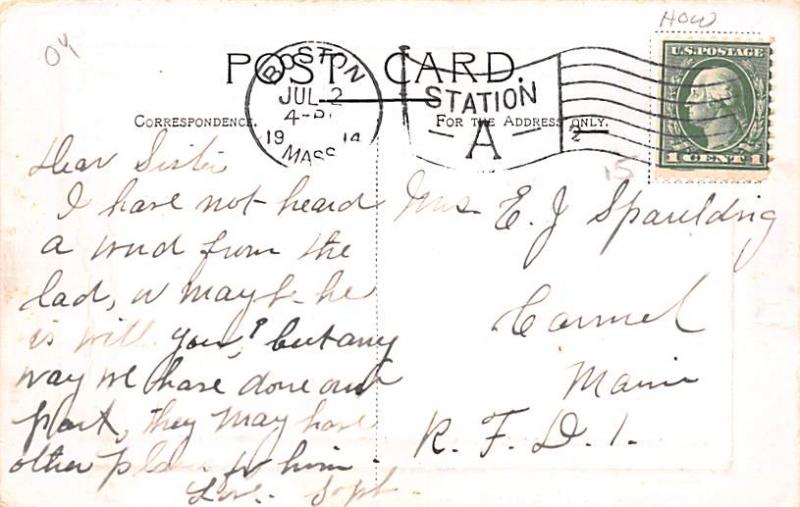 04
HOW
POST CARD.
BOSTON
JUL 2
4-P
19 14
MASS.
STATION
A
U.S. POSTAGE
1 CENT 1
CORRESPONDENCE.
FOR THE ADDRESS ONLY.
15
Dear Sister
I have not heard
a word from the
lad, or maybe he
is with you? but any
way we have done our
part, they may have
other plans for him.
Love.
Mrs. E. J Spaulding
Carmel
Maine
R. F. D. 1.